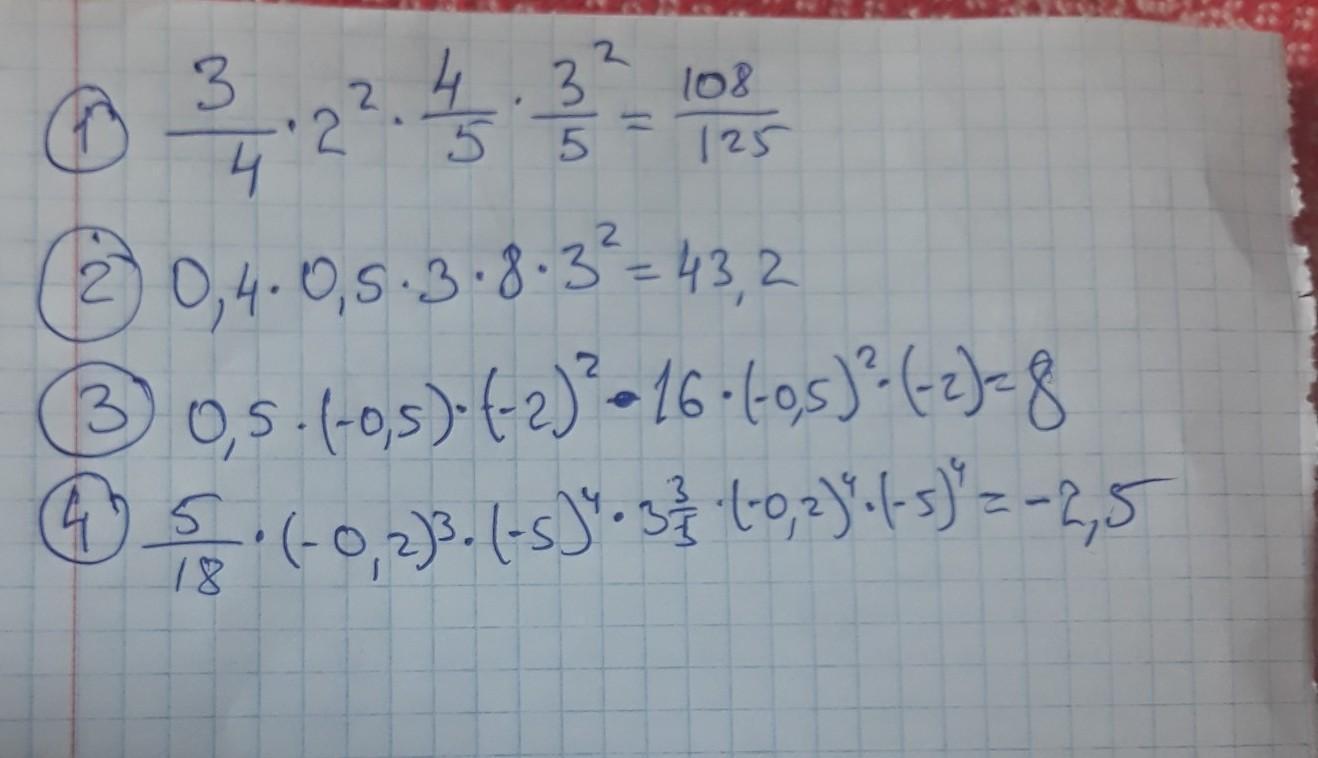 ① 3/4 · 2² · 4/5 · 3²/5 = 108/125
② 0,4 · 0,5 · 3 · 8 · 3² = 43,2
③ 0,5 · (-0,5) · (-2)² · 16 · (-0,5)² · (-2) = 8
④ 5/18 · (-0,2)³ · (-5)⁴ · 3 3/5 · (-0,2)⁴ · (-5)⁴ = -2,5